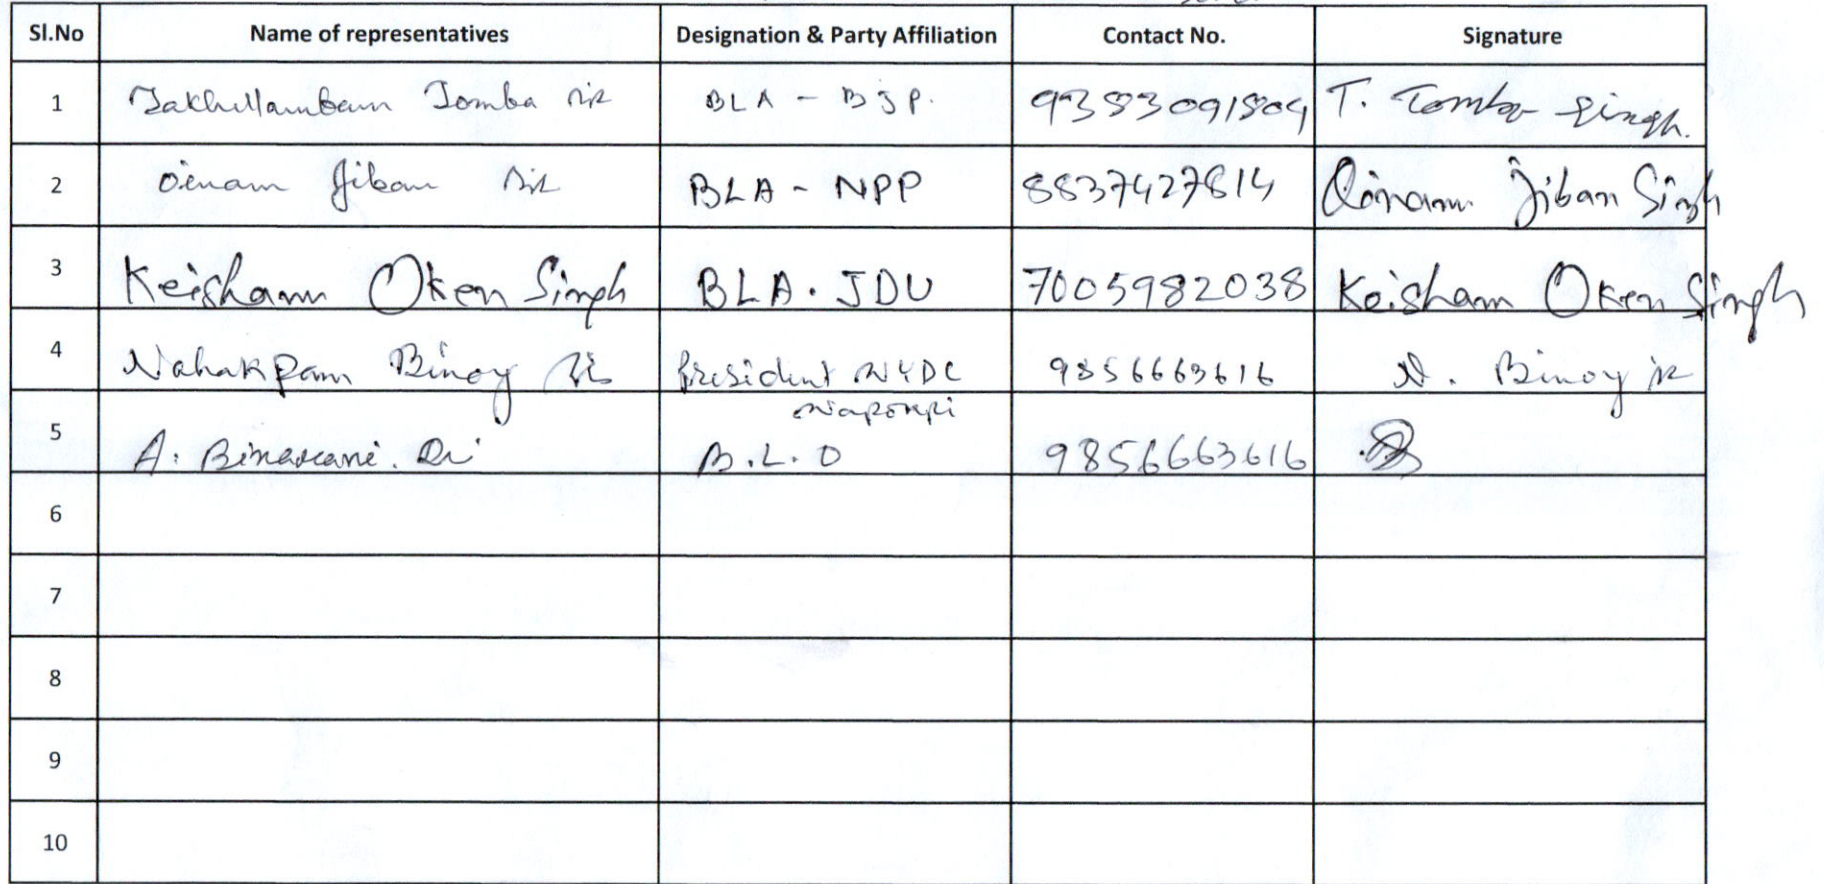 Sl.No Name of representatives Designation & Party Affiliation Contact No. Signature
1 Takhellambam Tomba BLA - BJP. T. Tomba Singh.
2 Oinam Jiban BLA - NPP 8837427814 Oinam Jiban Singh
3 Keisham Oken Singh BLA. JDU 7005982038 Keisham Oken Singh
4 Nahakpam Binoy President NYDC 9856663616 N. Binoy
5 A. B.L.O 9856663616
6
7
8
9
10